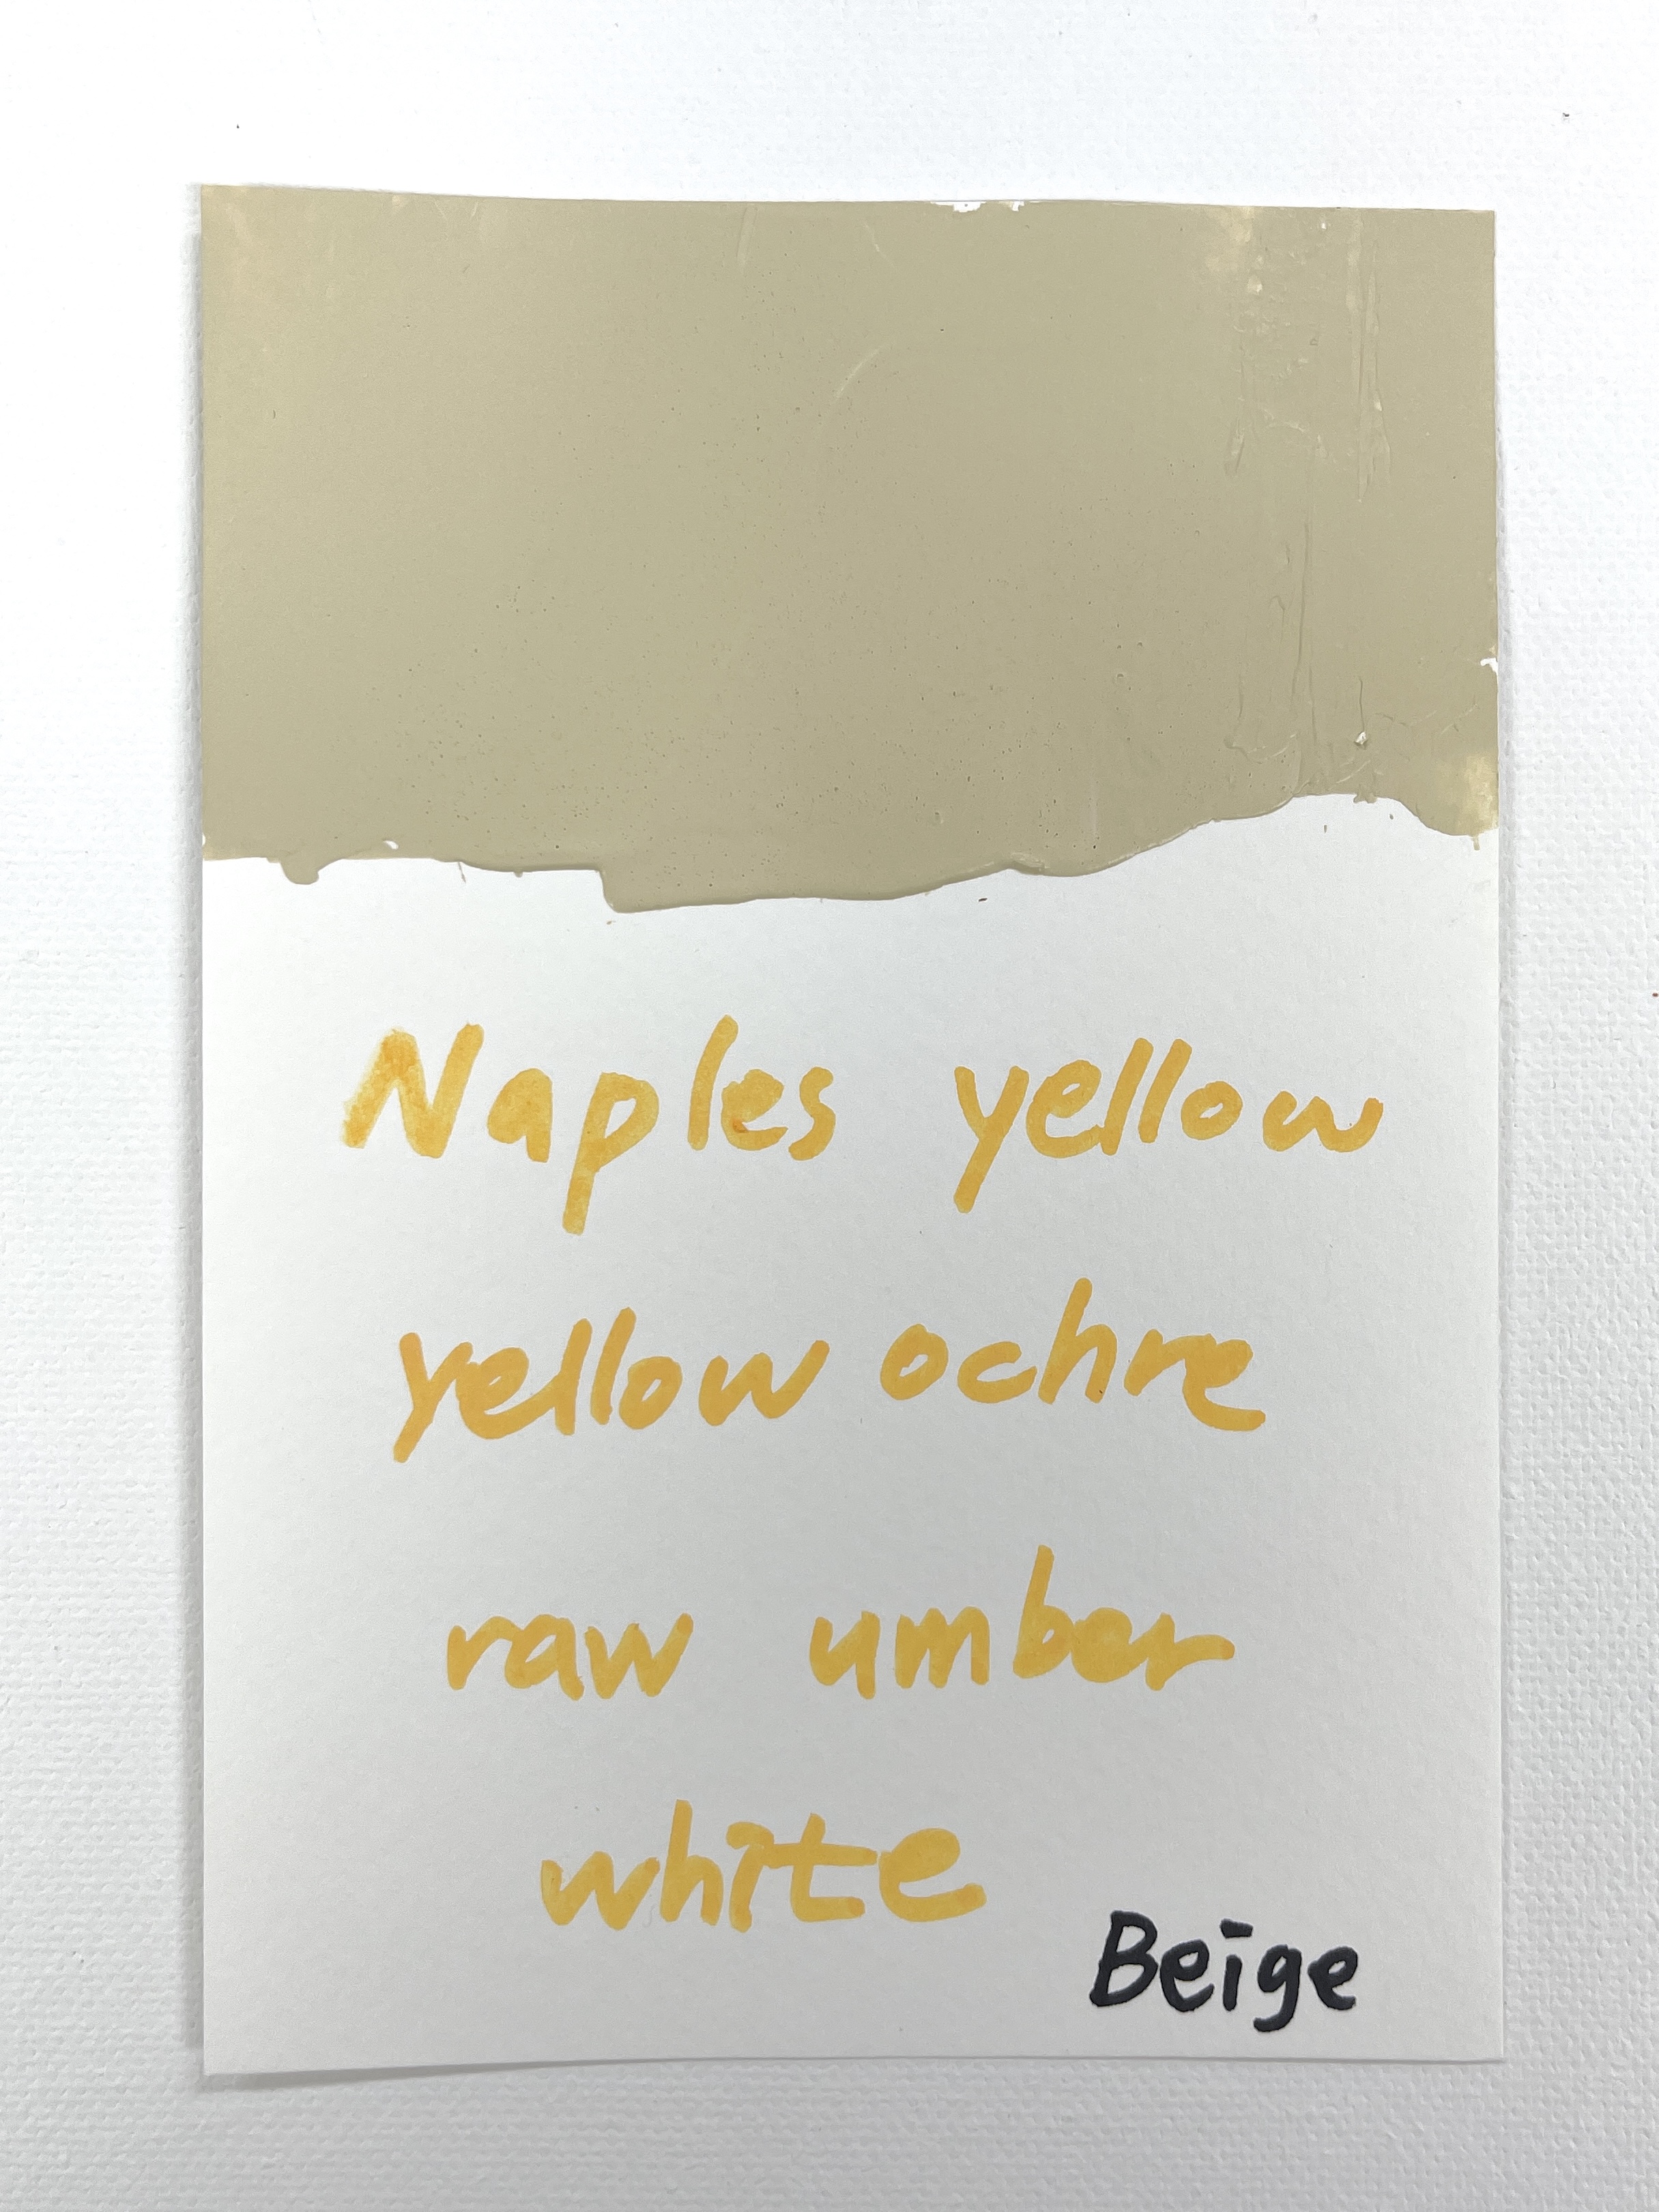 Naples yellow
yellow ochre
raw umber
white
Beige